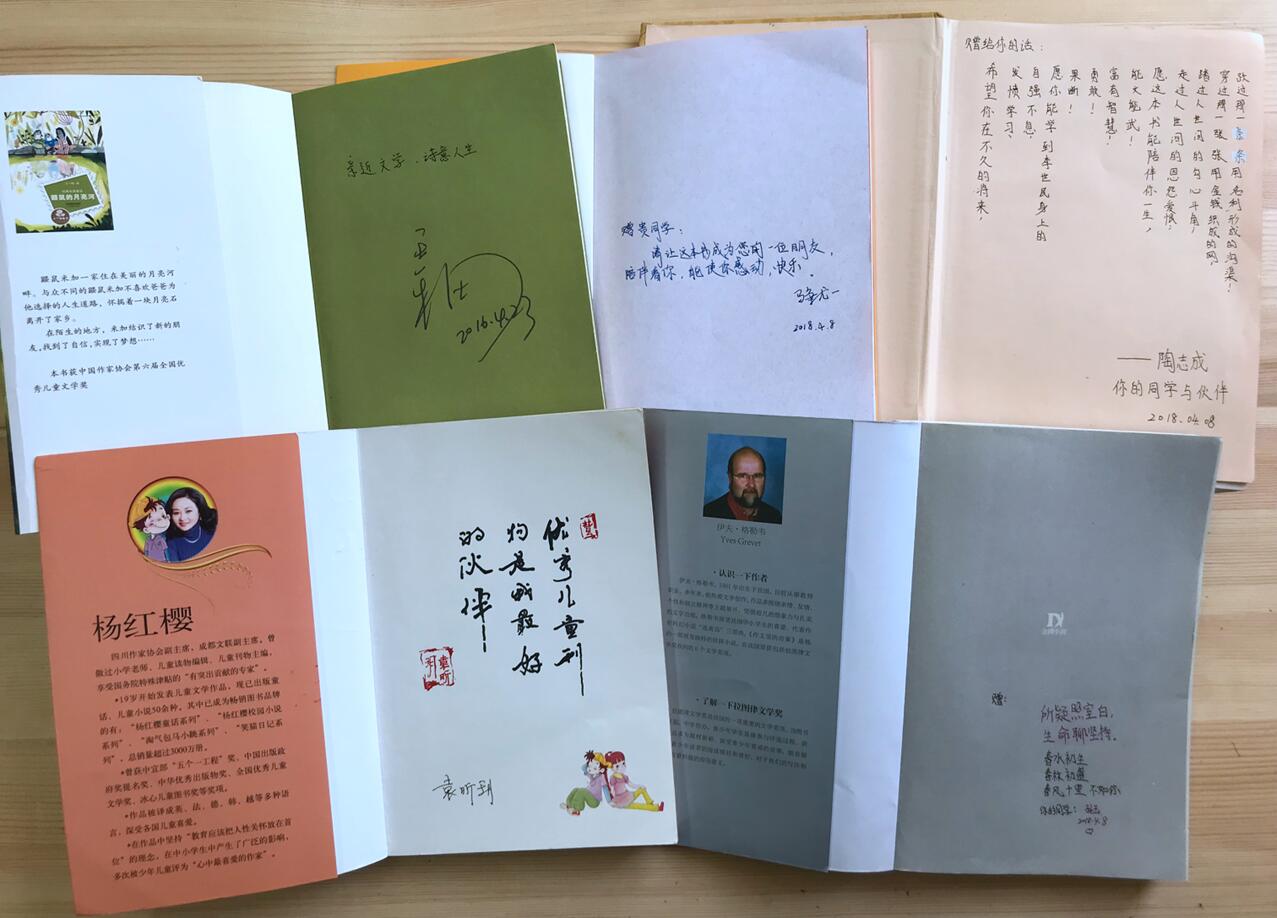 鼹鼠的月亮河
鼹鼠米加一家住在美丽的月亮河
畔。与众不同的鼹鼠米加不喜欢爸爸为
他选择的人生道路,怀揣着一块月亮石
离开了家乡。
在陌生的地方,米加结识了新的朋
友,找到了自信,实现了梦想……
本书获中国作家协会第六届全国优
秀儿童文学奖
亲近文学·诗意人生
赠贵同学:
请让这本书成为您的一位朋友
陪伴着你,能使你感动,快乐。
2018.4.8
赠给你的话:
跃过那一条条用名利形成的沟渠!
穿过那一张张用金钱织成的网
踏过人世间的勾心斗角,
走过人世间的恩怨爱恨,
愿这本书能陪伴你一生,
能文能武!
富有智慧!
勇敢!
果断!
愿你能学到李世民身上的
自强不息,
发愤学习,
希望你在不久的将来,
——陶志成
你的同学与伙伴
2018.04.08
杨红樱
四川作家协会副主席,成都文联副主席。曾
做过小学老师、儿童读物编辑、儿童刊物主编,
享受国务院特殊津贴的“有突出贡献的专家”。
*19岁开始发表儿童文学作品,现已出版童
话、儿童小说50余种。其中已成为畅销图书品牌
的有:“杨红樱童话系列”、“杨红樱校园小说
系列”、“淘气包马小跳系列”、“笑猫日记系
列”,总销量超过3000万册。
*曾获中宣部“五个一工程”奖、中国出版政
府奖提名奖、中华优秀出版物奖、全国优秀儿童
文学奖、冰心儿童图书奖等奖项。
*作品被译成英、法、德、韩、越等多种语
言,深受各国儿童喜爱。
*在作品中坚持“教育应该把人性关怀放在首
位”的理念,在中小学生中产生了广泛的影响,
多次被少年儿童评为“心中最喜爱的作家”。
优秀儿童刊
物是我最好
的伙伴
袁昕玥
伊夫·格勒韦
Yves Grevet
·认识一下作者
·了解一下拉图律文学奖
赠:
所疑照空白,
生命聊坚持。
春水初生
春林初盛
春风十里 不如你
你的同学:
2018.4.8